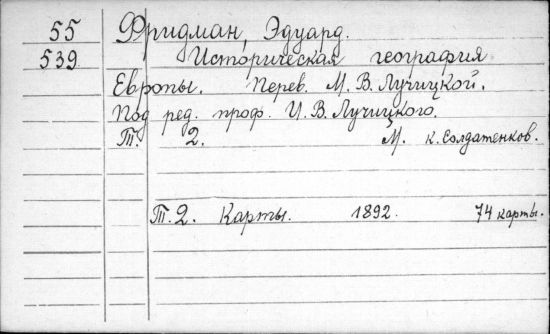 55 Фридман, Эдуард.
539 Историческая география
Европы. Перев. М. В. Лучицкой.
Под ред. проф. И. В. Лучицкого.
Т. 2. М. К. Солдатенков.
Т. 2. Карты. 1892. 74 карты.